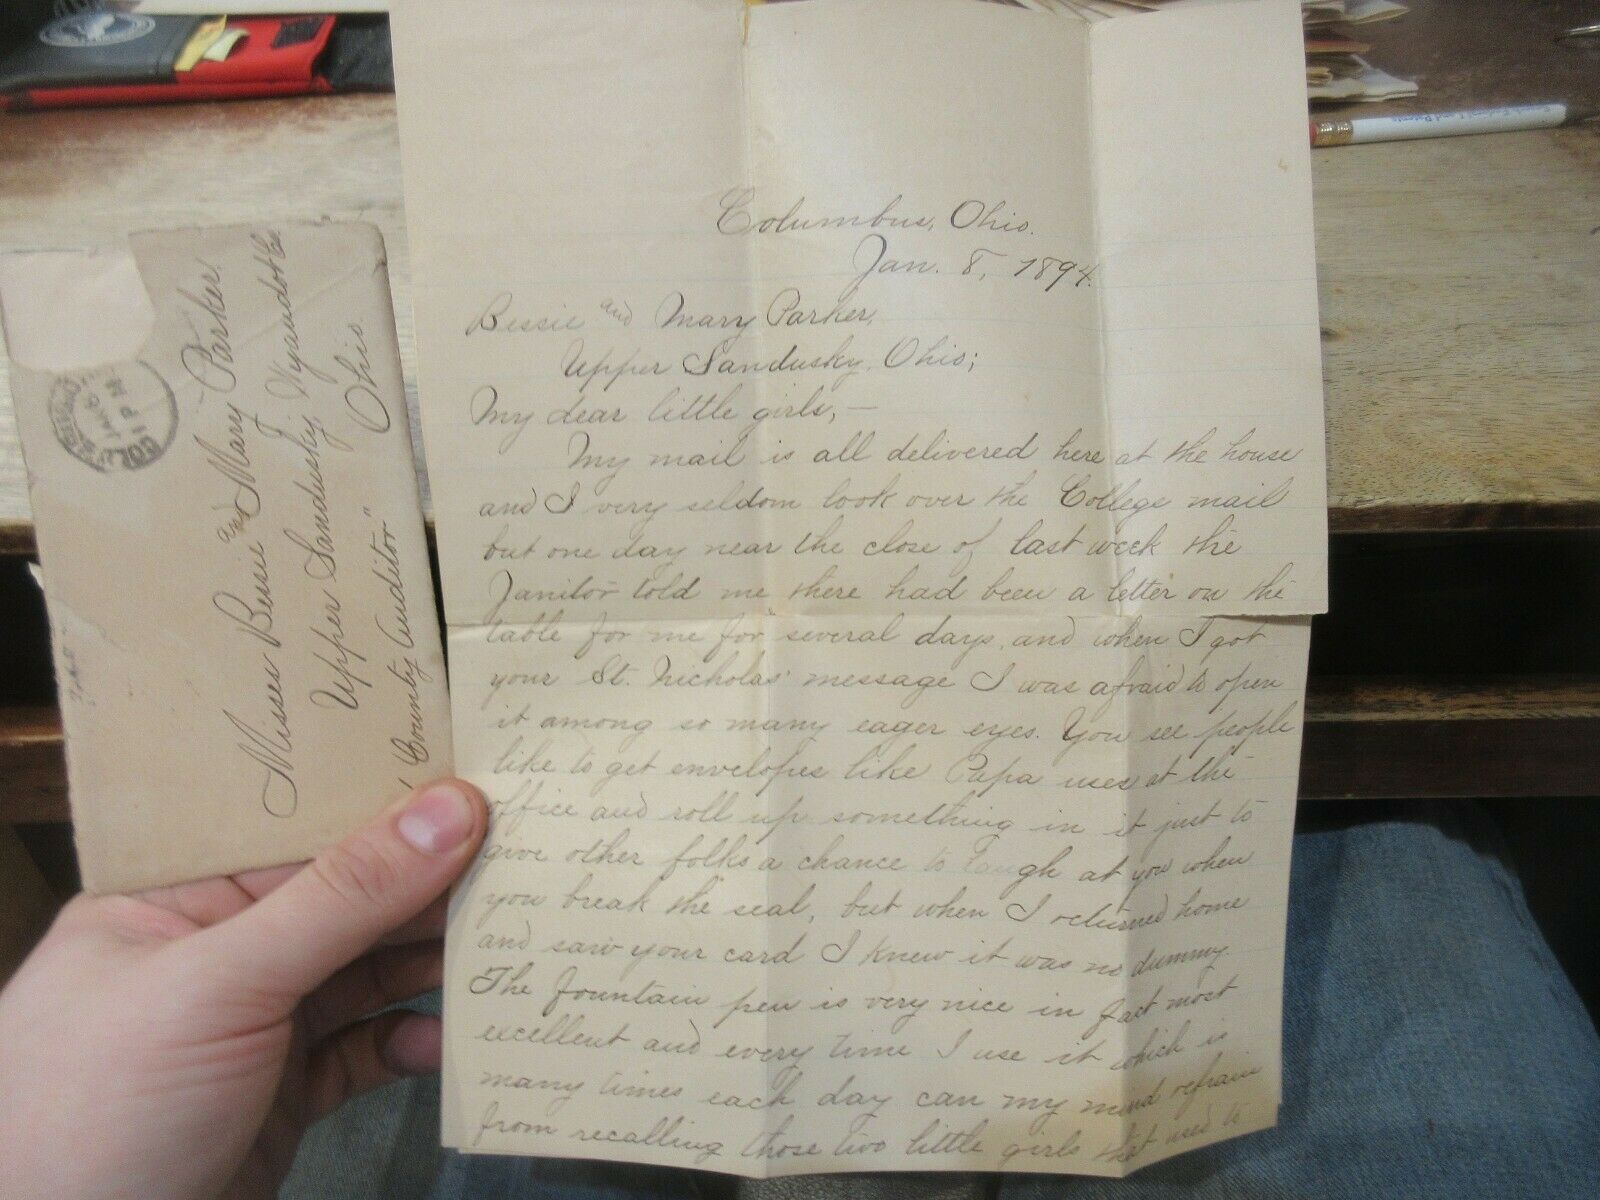 Columbus, Ohio.
Jan. 8, 1894.
Bessie and Mary Parker,
Upper Sandusky, Ohio;
My dear little girls,—
My mail is all delivered here at the house
and I very seldom look over the College mail
but one day near the close of last week the
Janitor told me there had been a letter on the
table for me for several days, and when I got
your St. Nicholas' message I was afraid to open
it among so many eager eyes. You see people
like to get envelopes like Papa uses at the
office and roll up something in it just to
give other folks a chance to laugh at you when
you break the seal, but when I returned home
and saw your card I knew it was no dummy.
The fountain pen is very nice in fact most
excellent and every time I use it which is
many times each day can my mind refrain
from recalling those two little girls that used to
Misses Bessie and Mary Parker,
Upper Sandusky, Wyandot Co.
Ohio.
"County Auditor"
JAN 8
1 PM